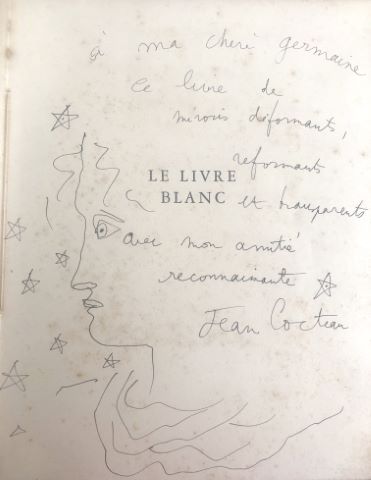 à ma cheré germaine
ce livre de
mirois déformants,
reformants
LE LIVRE
BLANC
et transparents
avec mon amitié
reconnaissante
Jean Cocteau